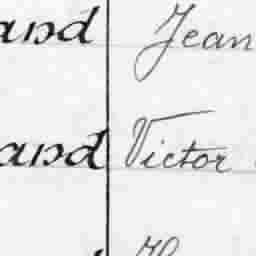 and Jean
and Victor